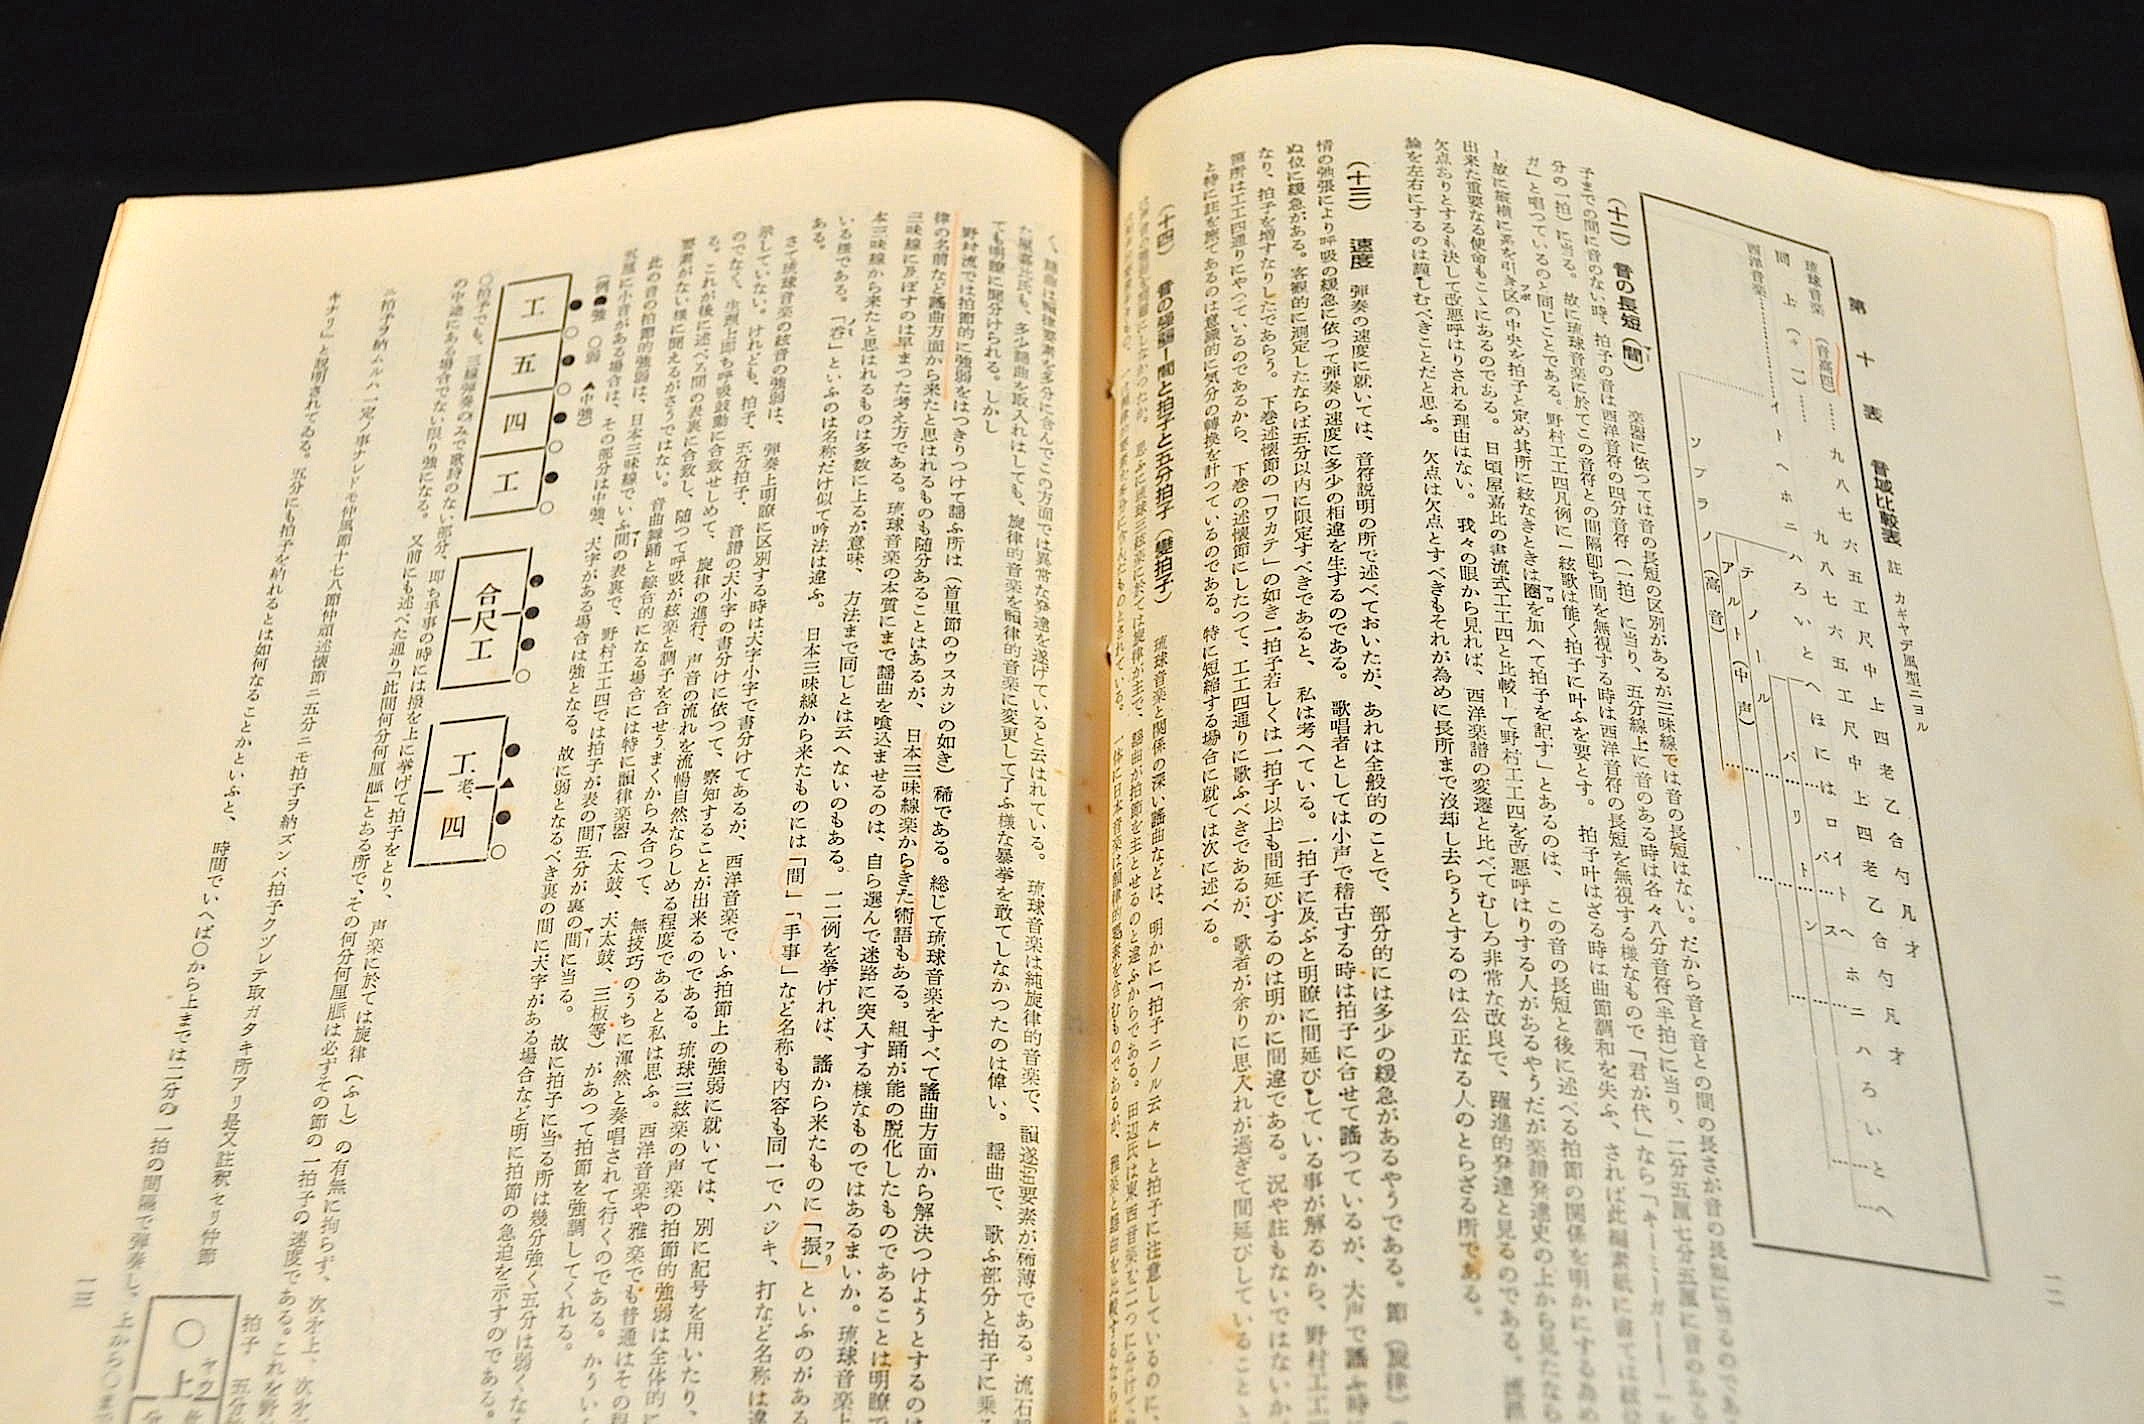 第十表　音域比較表　註　カギヤデ風型ニヨル
琉球音楽（音高四）……九八七六五工尺中上四老乙合勺凡才
同　上（＋一）……九八七六五工尺中上四老乙合勺凡才
西洋音楽…………イトヘホニハろいとへほにはロイトヘホニハろいとへ
ソプラノ（高音）
アルト（中声）
テノール
バリトン
バス
（十二）　音の長短（間）　楽器に依つては音の長短の区別があるが三味線では音の長短はない。だから音と音との間の長さが音の長短に当るのであ
子までの間に音のない時、拍子の音は西洋音符の四分音符（一拍）に当り、五分線上に音のある時は各々八分音符（半拍）に当り、二分五厘七分五厘に音のある
分の一拍）に当る。故に琉球音楽に於てこの音符との間隔即ち間を無視する時は西洋音符の長短を無視する様なもので「君が代」なら「キーミーガーー
ガ」と唱つているのと同じことである。野村工工四凡例に「絃歌は能く拍子に叶ふを要とす。拍子叶はざる時は曲節調和を失ふ、されば此縮素紙に書ては
し故に縦横に系を引き区の中央を拍子と定め其所に絃なきときは圏を加へて拍子を記す」とあるのは、この音の長短と後に述べる拍節の関係を明かにする為め
出来た重要なる使命もこゝにあるのである。日頃屋嘉比の書流式工工四と比較して野村工工四を改悪呼はりする人があるやうだが楽譜発達史の上から見たなら
欠点ありとするも決して改悪呼はりされる理由はない。我々の眼から見れば、西洋楽譜の変遷と比べてむしろ非常な改良で、躍進的発達と見るのである。
論を左右にするのは謹しむべきことだと思ふ。欠点は欠点とすべきもそれが為めに長所まで没却し去らうとするのは公正なる人のとらざる所である。
（十三）　速度　弾奏の速度に就いては、音符説明の所で述べておいたが、あれは全般的のことで、部分的には多少の緩急があるやうである。節（旋律）
情の弛張により呼吸の緩急に依つて弾奏の速度に多少の相違を生するのである。歌唱者としては小声で稽古する時は拍子に合せて謡つているが、大声で謡ふ時
ぬ位に緩急がある。客観的に測定したならば五分以内に限定すべきであると、私は考へている。一拍子に及ぶと明瞭に間延びしている事が解るから、野村工工
なり、拍子を増すなりしたであらう。下巻述懐節の「ワカテ」の如き一拍子若しくは一拍子以上も間延びするのは明かに間違である。況や註もないではないか
箇所は工工四通りにやつているのであるから、下巻の述懐節にしたつて、工工四通りに歌ふべきであるが、歌者が余りに思入れが過ぎて間延びしていること
と特に註を施してあるのは意識的に気分の転換を計つているのである。特に短縮する場合に就ては次に述べる。
（十四）　音の強弱―間と拍子と五分拍子（變拍子）　琉球音楽と関係の深い謡曲などは、明かに「拍子ニノル云々」と拍子に注意しているのに、
一二
く、謡曲は韻律要素を多分に含んでこの方面では異常な発達を遂げていると云はれている。琉球音楽は純旋律的音楽で、韻遂的要素が稀薄である。流石
た屋嘉比氏も、多少謡曲を取入れはしても、旋律的音楽を韻律的音楽に変更して了ふ様な暴挙を敢てしなかつたのは偉い。謡曲で、歌ふ部分と拍子に乗
ても明瞭に聞分けられる。しかし
野村流では拍節的に強弱をはつきりつけて謡ふ所は（首里節のウスカジの如き）稀である。総じて琉球音楽をすべて謡曲方面から解決つけようとするのは
律の名前など謡曲方面から来たと思はれるものも随分あることはあるが、日本三味線楽からきた術語もある。組踊が能の脱化したものであることは明瞭で
三味線に及ぼすのは早まつた考え方である。琉球音楽の本質にまで謡曲を喰込ませるのは、自ら選んで迷路に突入する様なものではあるまいか。琉球音楽上
本三味線から来たと思はれるものは多数に上るが意味、方法まで同じとは云へないのもある。一二例を挙げれば、謡から来たものに「振」といふのがあ
いる様である。「呑」といふのは名称だけ似て吟法は違ふ。日本三味線から来たものには「間」「手事」など名称も内容も同一でハジキ、打など名称は違
ある。
さて琉球音楽の絃音の強弱は、弾奏上明瞭に区別する時は大字小字で書分けてあるが、西洋音楽でいふ拍節上の強弱に就いては、別に記号を用いたり、
示していない。けれども、拍子、五分拍子、音譜の大小字の書分けに依つて、察知することが出来るのである。琉球三絃楽の声楽の拍節的強弱は全体的に
のでなく、生理上即ち呼吸鼓動に合致せしめて、旋律の進行、声音の流れを流暢自然ならしめる程度であると私は思ふ。西洋音楽や雅楽でも普通はその
る。これが後に述べる間の表裏に合致し、随つて呼吸が絃楽と調子を合せうまくからみ合つて、無技巧のうちに渾然と奏唱されて行くのである。かうい
要素がない様に聞えるがさうではない。音曲舞踊と綜合的になる場合には特に韻律楽器（太鼓、大太鼓、三板等）があつて拍節を強調してくれる。
此の音の拍節的強弱は、日本三味線でいふ間の表裏で、野村工工四では拍子が表の間五分が裏の間に当る。故に拍子に当る所は幾分強く五分は弱くな
五厘に小音がある場合は、その部分は中強、大字がある場合は強となる。故に弱となるべき裏の間に大字がある場合など明に拍節の急迫を示すのである。
（例）●強　○弱　▲中強）
工五四工
●○●○●○●○
合尺工
●●●○
工老、四
●▲●○
○拍子でも、三線弾奏のみで歌詩のない部分、即ち手事の時には撥を上に挙げて拍子をとり、声楽に於ては旋律（ふし）の有無に拘らず、次ぎ上、次ぎ
の中途にある場合でない限り強になる。又前にも述べた通り「此間何分何厘脈」とある所で、その何分何厘脈は必ずその節の一拍子の速度である。これを野
ニ拍子ヲ納ムルハ一定ノ事ナレドモ仲風節十七八節仲順述懐節ニ五分ニモ拍子ヲ納ズンバ拍子クヅレテ取ガタキ所アリ是又註釈セリ仲節
キナリ」と説明されてゐる。五分にも拍子を納れるとは如何なることかといふと、時間でいへば○から上までは二分の一拍の間隔で弾奏し、上から○ま
拍子
五分
○上
一三